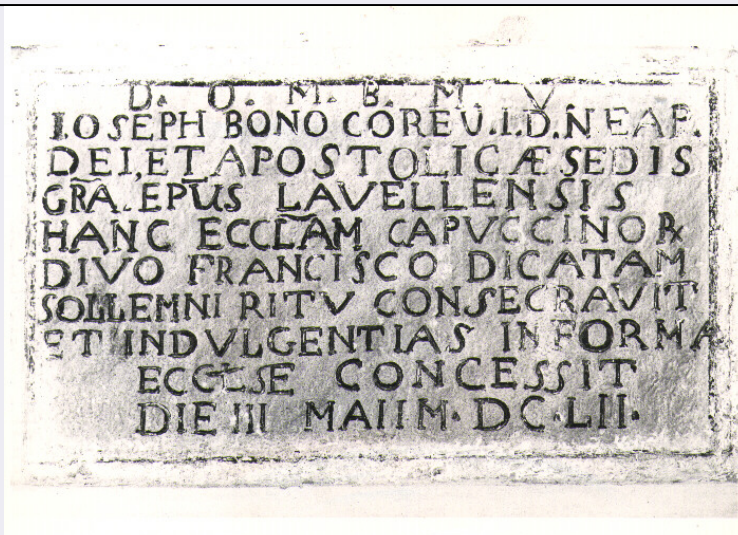 D. O. M. B. M. V.
IOSEPH BONO CORE V.I.D. NEAP.
DEI, ET APOSTOLICÆ SEDIS
GRĀ. EPŪS LAVELLENSIS
HANC ECCLĀM CAPVCCINOꝶ
DIVO FRANCISCO DICATAM
SOLLEMNI RITV CONSECRAVIT
ET INDVLGENTIAS IN FORMA
CONCESSIT
DIE III MAII M. DC. LII.